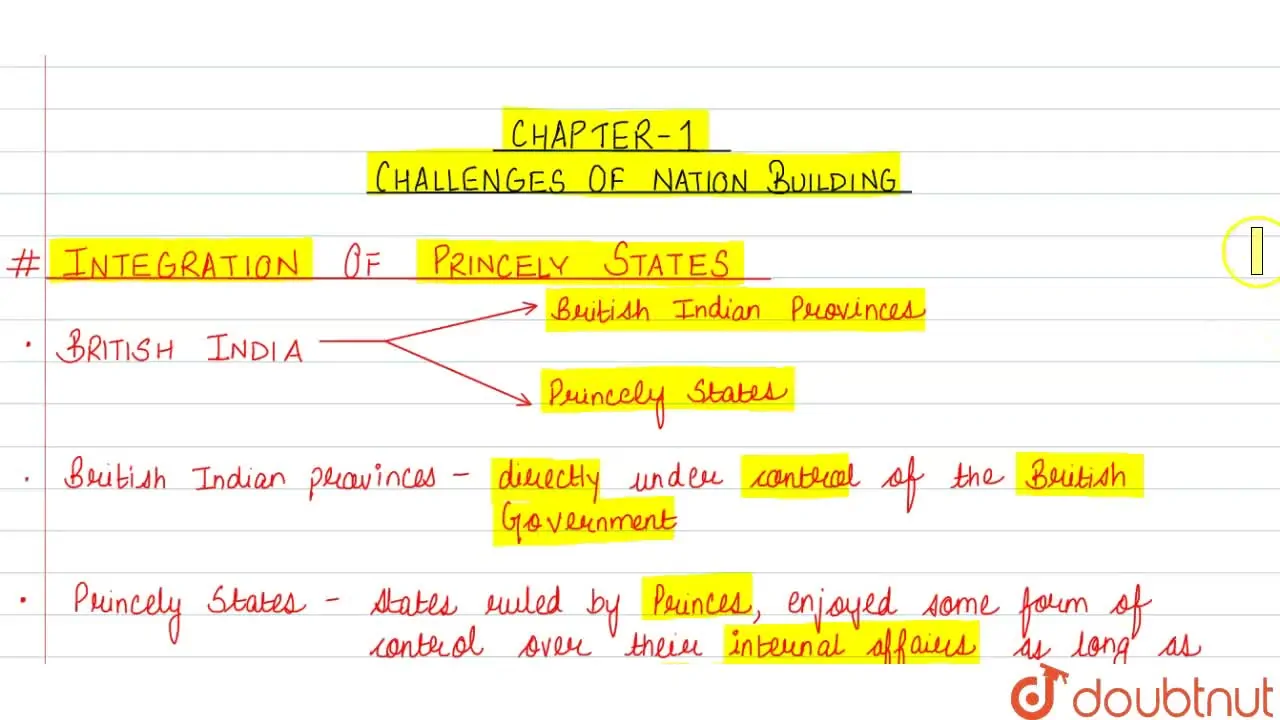 CHAPTER-1
CHALLENGES OF NATION BUILDING
# INTEGRATION OF PRINCELY STATES
British Indian Provinces
· BRITISH INDIA
Princely States
· British Indian provinces - directly under control of the British
Government
· Princely States - states ruled by Princes, enjoyed some form of
control over their internal affairs as long as
doubtnut